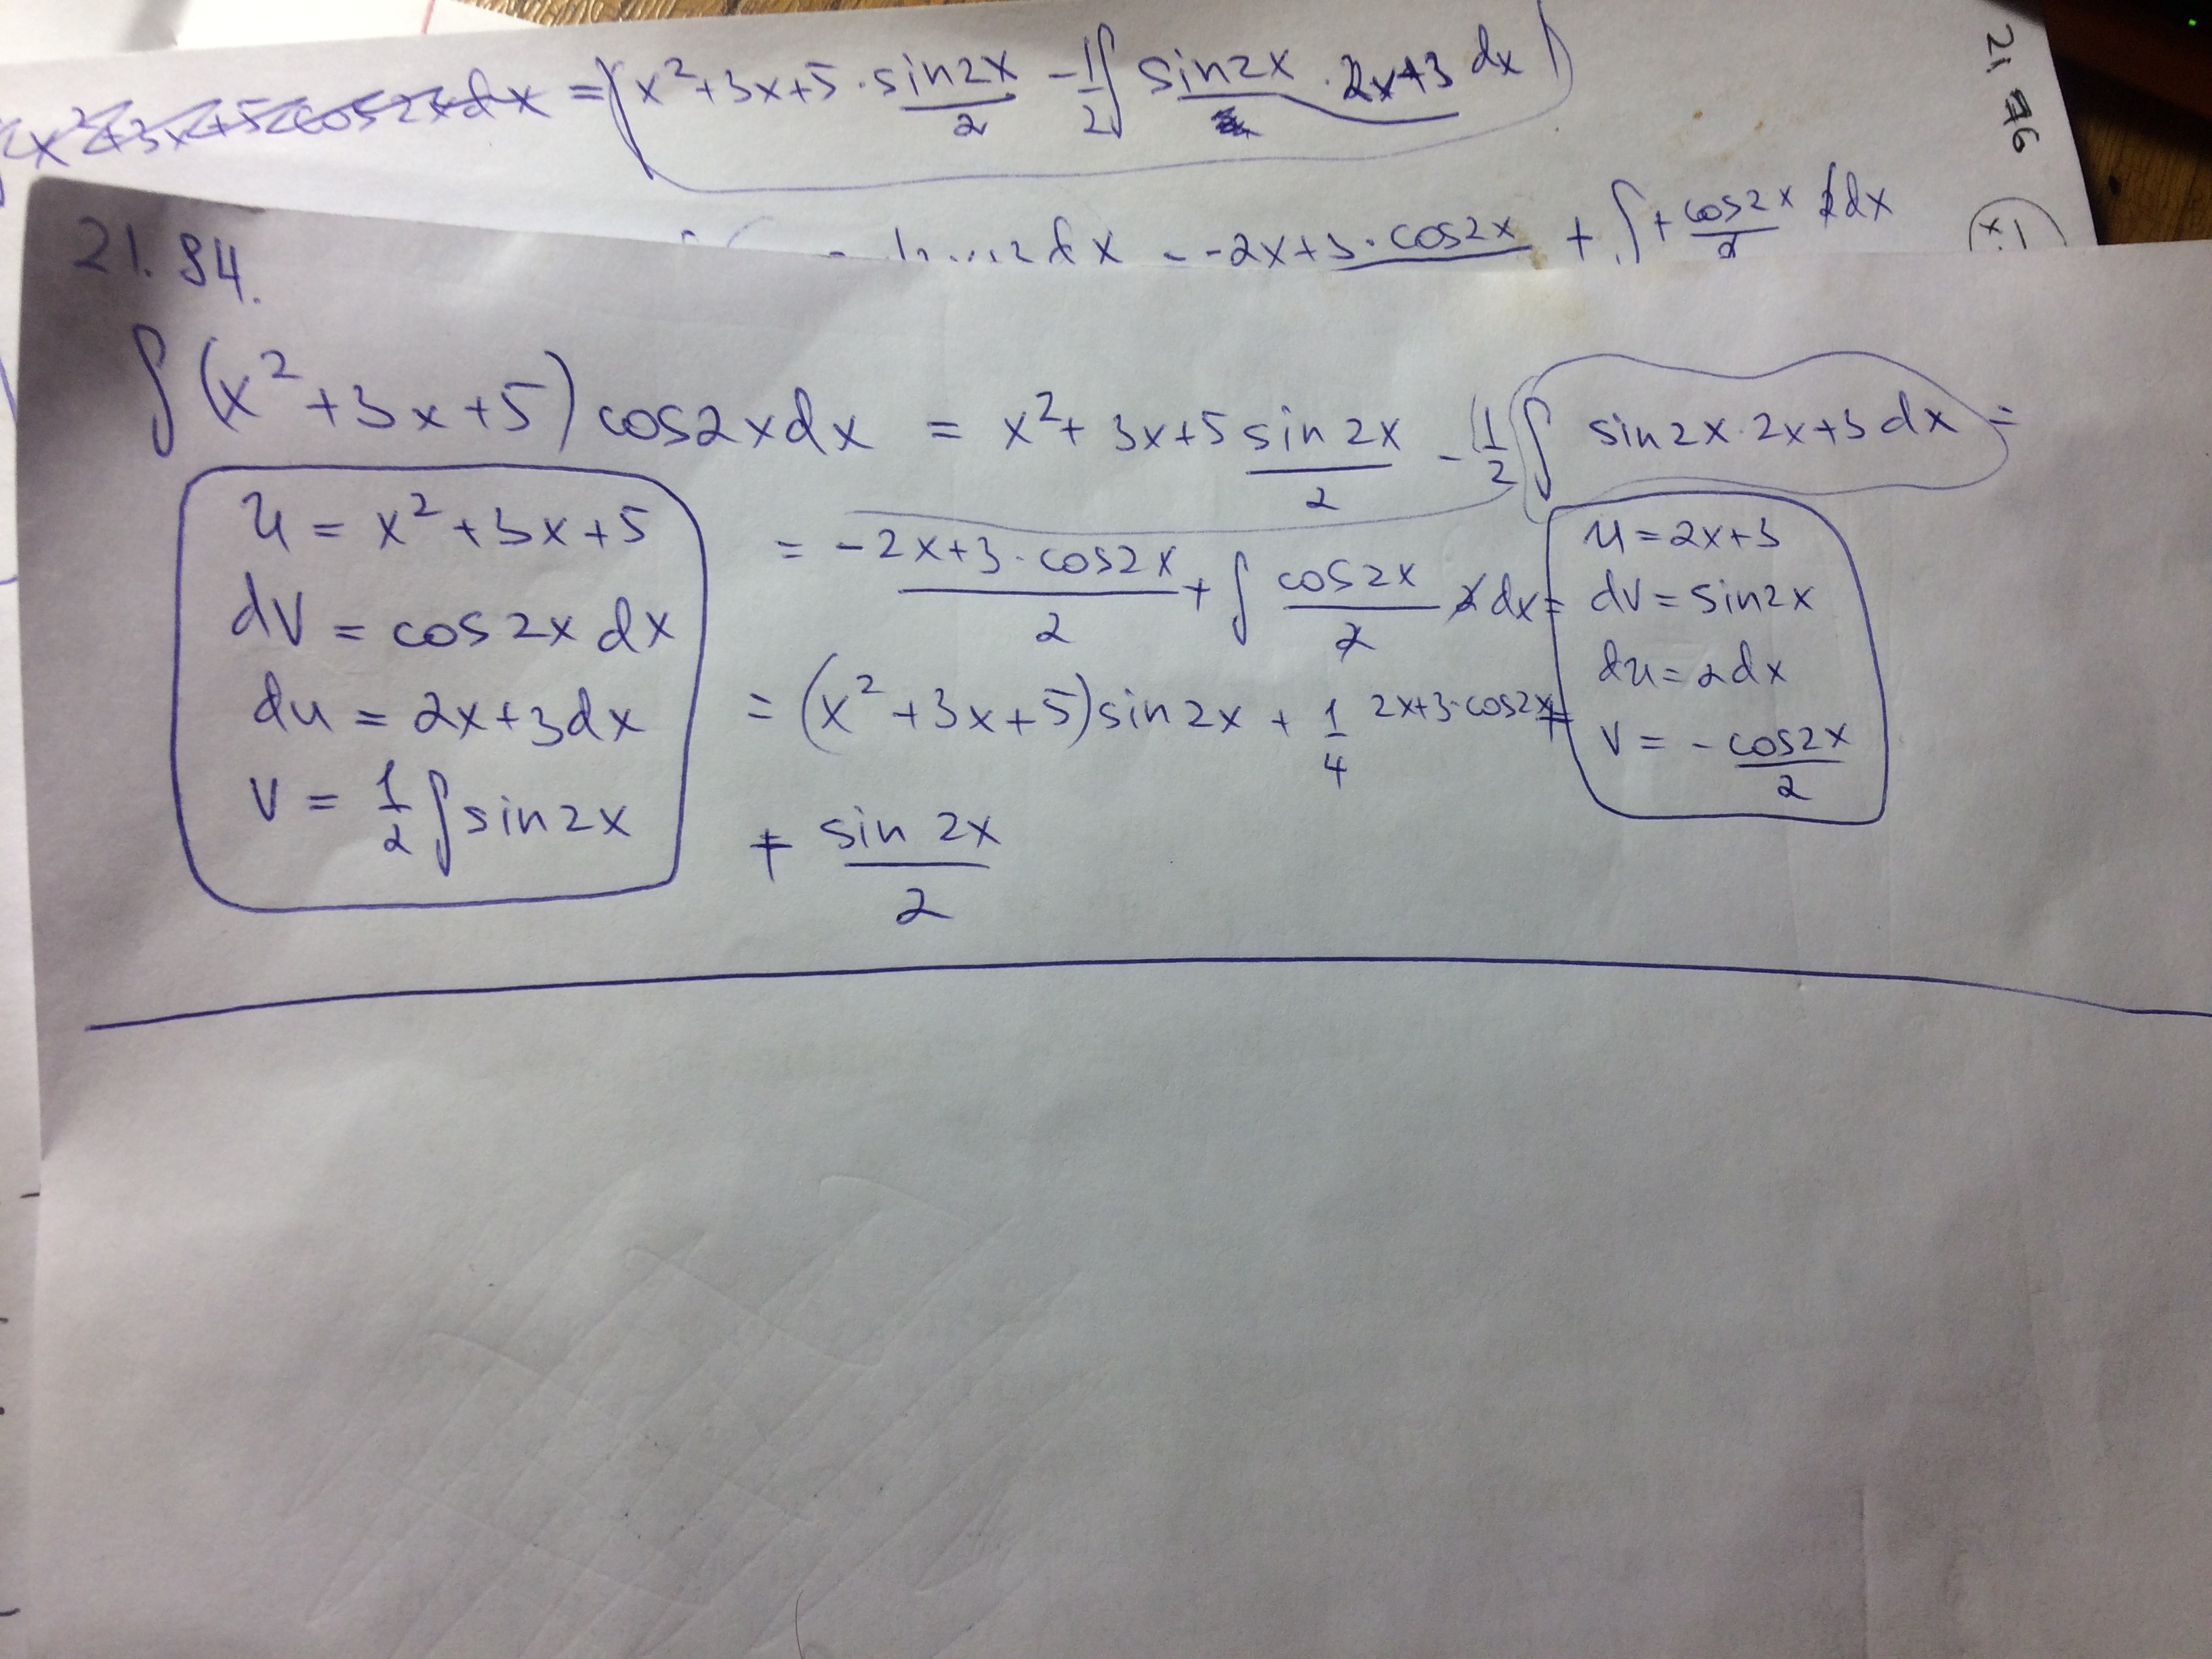 x²+3x+5 cos2x dx = (x²+3x+5 · sin2x/2 - 1/2 ∫ sin2x · 2x+3 dx)
dx = -2x+3 · cos2x + ∫ + cos2x/2 2dx
21.76
21.94.
∫ (x²+3x+5) cos2x dx = x²+3x+5 sin2x/2 - 1/2 ∫ sin2x · 2x+3 dx =
u = x²+3x+5
dv = cos2x dx
du = 2x+3dx
v = 1/2 ∫ sin2x
= -2x+3 · cos2x/2 + ∫ cos2x/2 2dx =
= (x²+3x+5) sin2x + 1/4 2x+3·cos2x +
+ sin 2x/2
u = 2x+3
dv = sin2x
du = 2dx
v = - cos2x/2